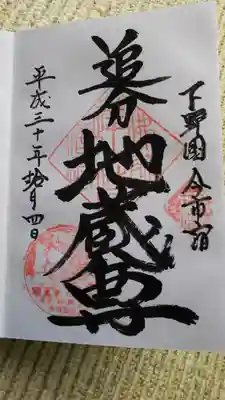 下野國今市宿
追分地蔵尊
平成三十年拾月四日